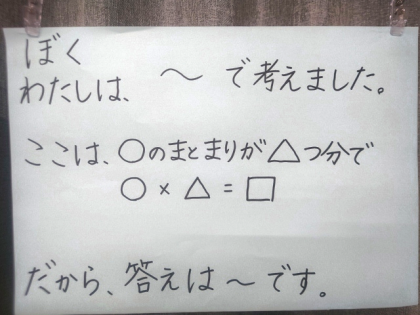 ぼく
わたしは、 〜 で考えました。
ここは、○のまとまりが△つ分で
○ × △ = □
だから、答えは〜です。